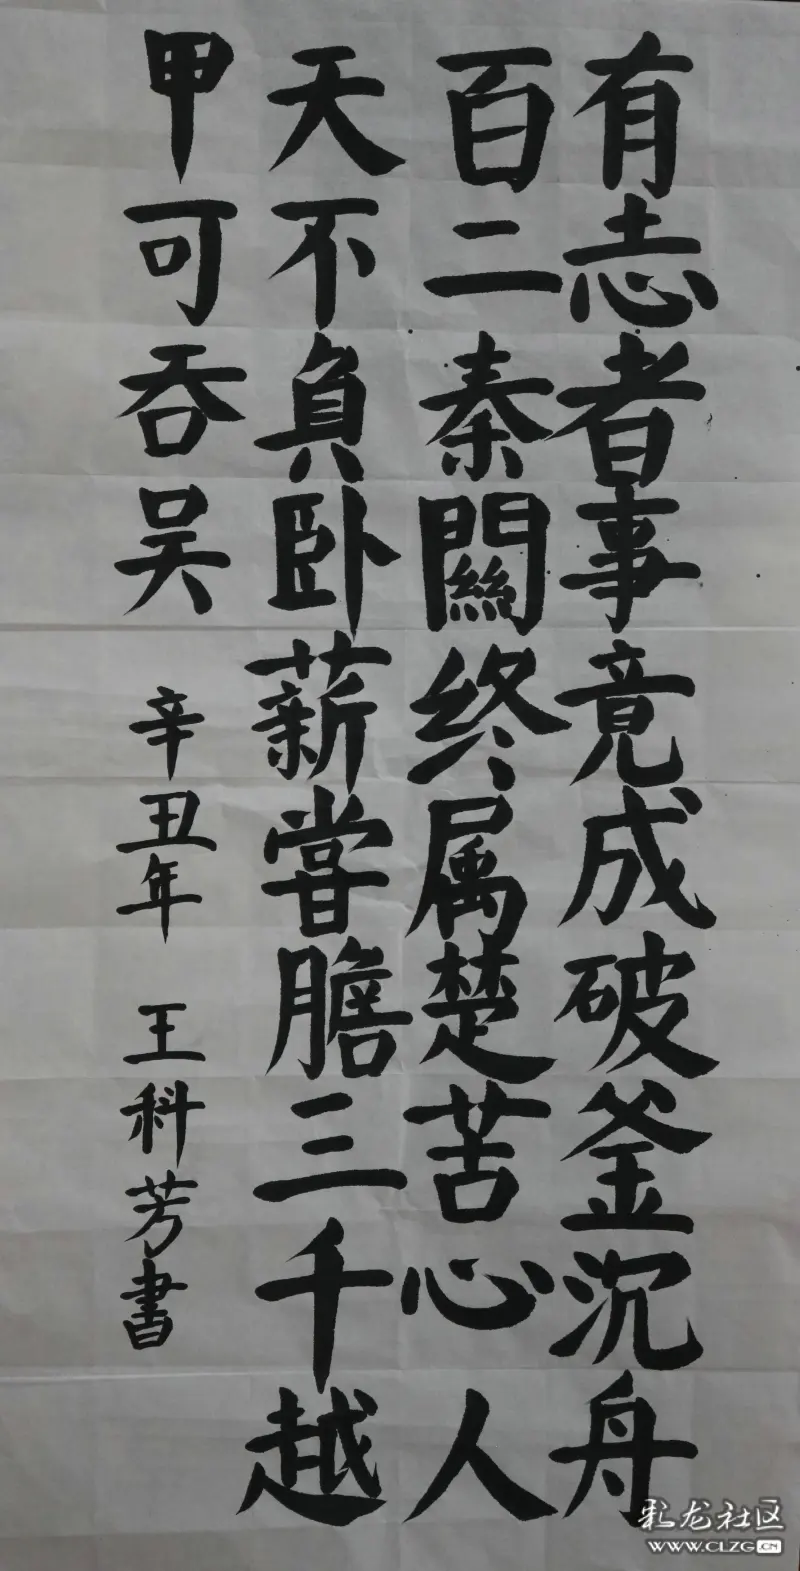 有志者事竟成破釜沉舟
百二秦關终属楚苦心人
天不負卧薪嘗膽三千越
甲可吞吴
辛丑年 王科芳書
彩龙社区
WWW.CLZG.CN